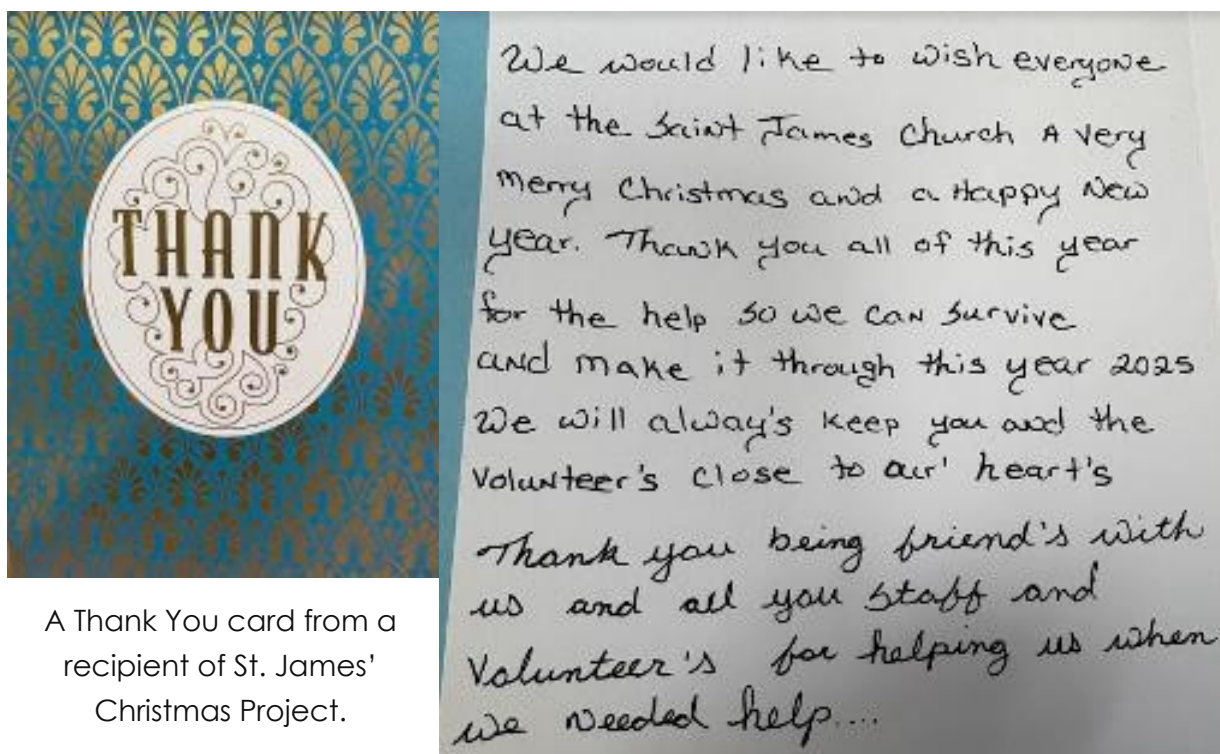 THANK
YOU
A Thank You card from a
recipient of St. James'
Christmas Project.
We would like to wish everyone
at the Saint James Church A very
merry Christmas and a Happy New
year. Thank you all of this year
for the help so we can survive
and make it through this year 2025
We will always's keep you and the
Volunteer's close to our' heart's
Thank you being friend's with
us and all you staff and
Volunteer's for helping us when
we needed help....